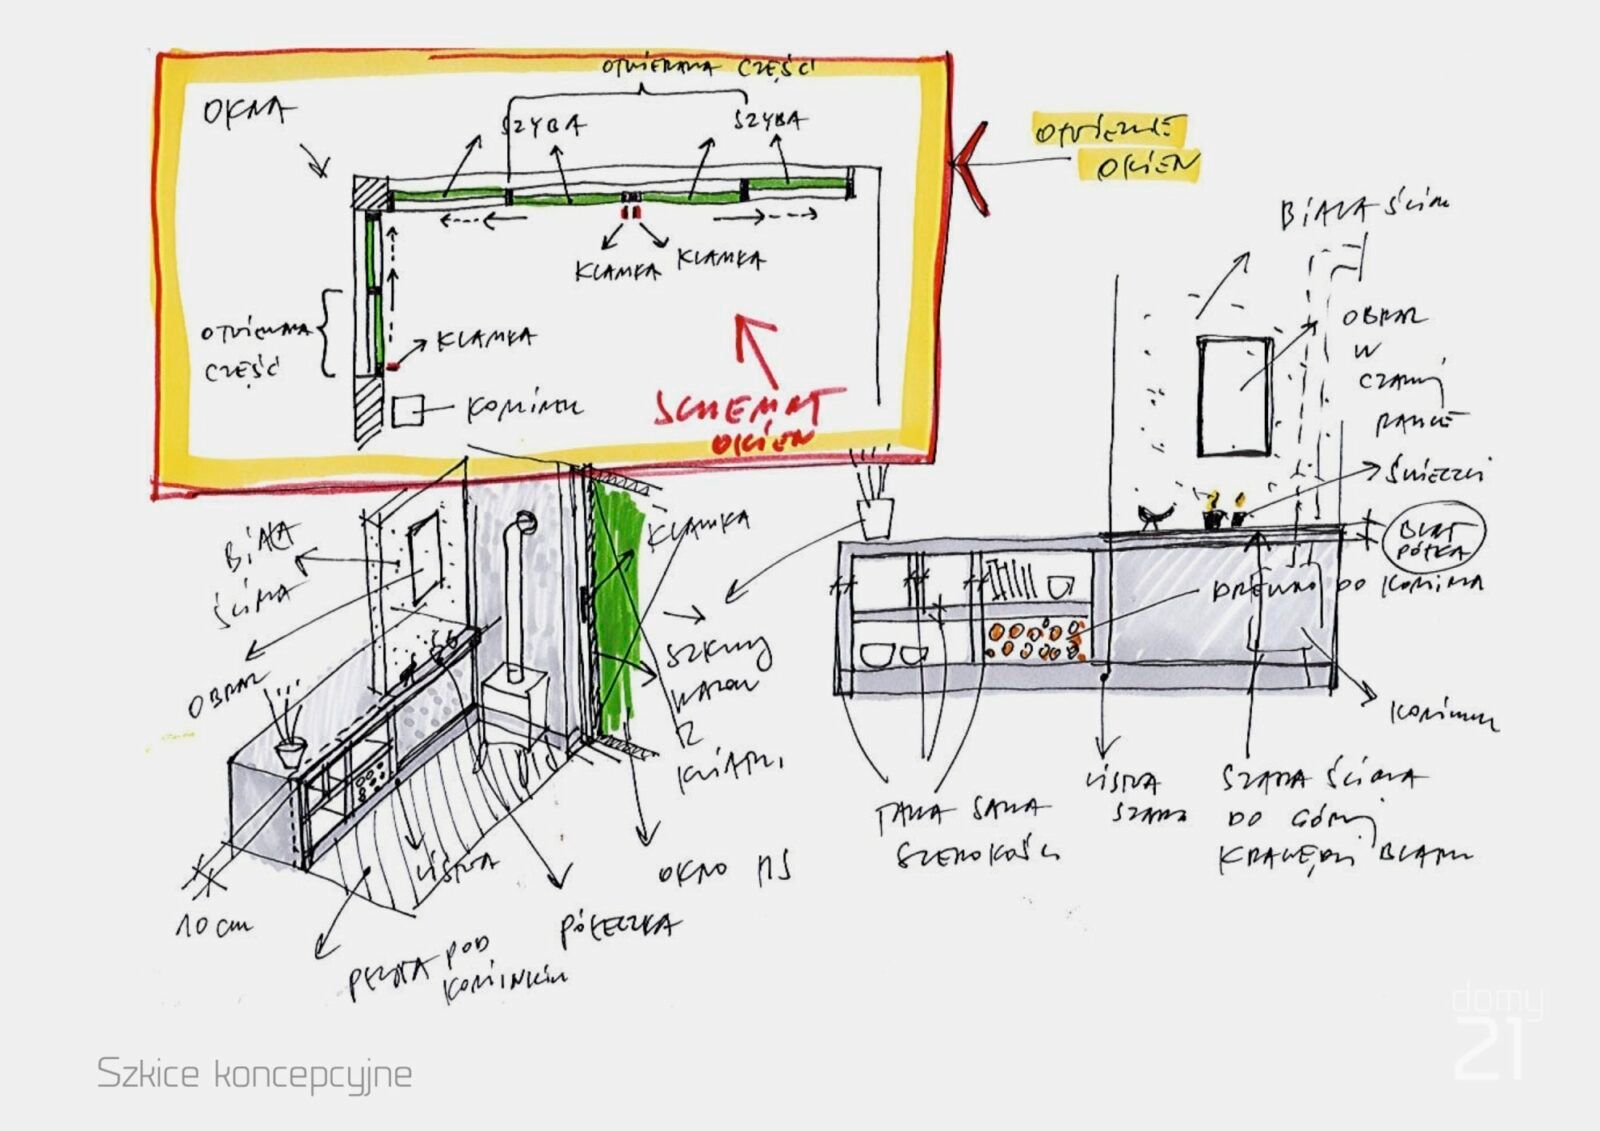 OTWIERANA CZĘŚĆ
OKNA
SZYBA
SZYBA
OTWIERANIE
OKIEN
KLAMKA
KLAMKA
OTWIERANA
CZĘŚĆ
KLAMKA
KOMINEK
SCHEMAT
OKIEN
BIAŁA ŚCIANA
OBRAZ
W
CZARNEJ
RAMCE
ŚWIECZKI
BLAT
PÓŁKA
DREWNO DO KOMINKA
KOMINEK
TAKA SAMA
SZEROKOŚĆ
LISTWA
SZARA
SZARA ŚCIANA
DO GÓRNEJ
KRAWĘDZI BLATU
BIAŁA
ŚCIANA
OBRAZ
KLAMKA
SZKLANY
WAZON
Z
KWIATKI
OKNO HS
LISTWA
10 cm
PÓŁECZKA
PŁYTA POD
KOMINKIEM
Szkice koncepcyjne
domy
21